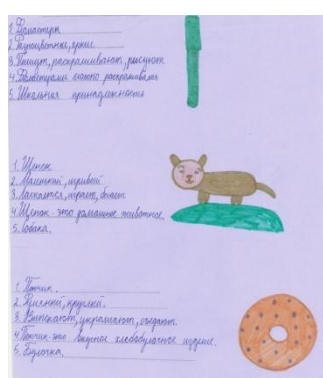 1. Фломастеры
2. Разноцветные, яркие
3. Пишут, раскрашивают, рисуют.
4. Фломастерами можно раскрашивать
5. Школьная принадлежность
1. Щенок
2. Маленький, игривый
3. Ласкается, играет,
4. Щенок - это домашнее животное.
5. Собака.
1. Пончик.
2. круглый.
3. Выпекают, украшают, съедают.
4. Пончик-это вкусное хлебобулочное изделие.
5. Булочка.